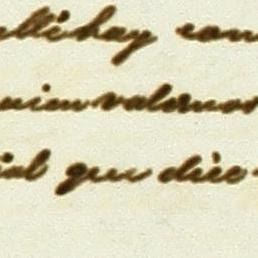 allí hay con
quien valernos
ial que dice